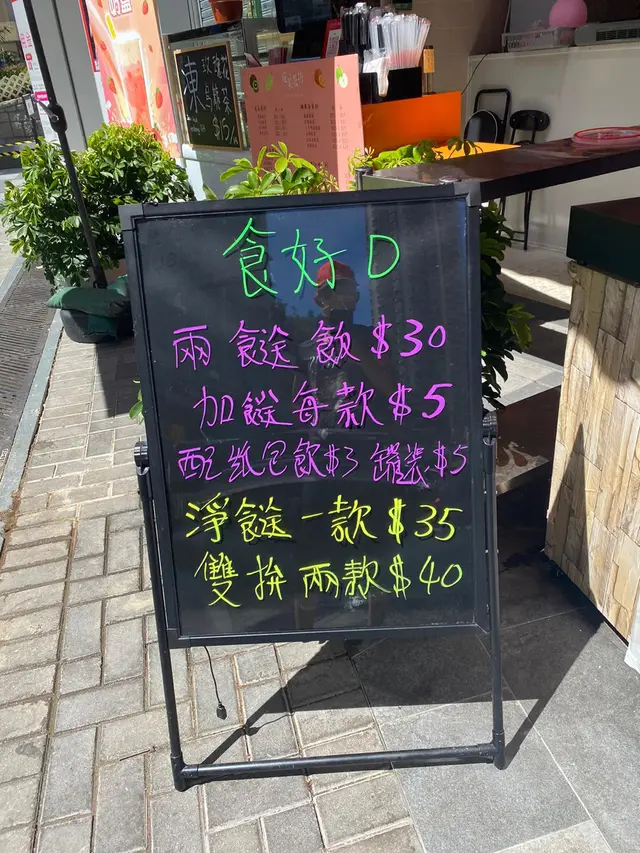 食好D
兩餸飯 $30
加餸每款 $5
配紙包飲$3 罐裝$5
淨餸一款 $35
雙拚兩款 $40
凍
玫瑰
烏龍茶